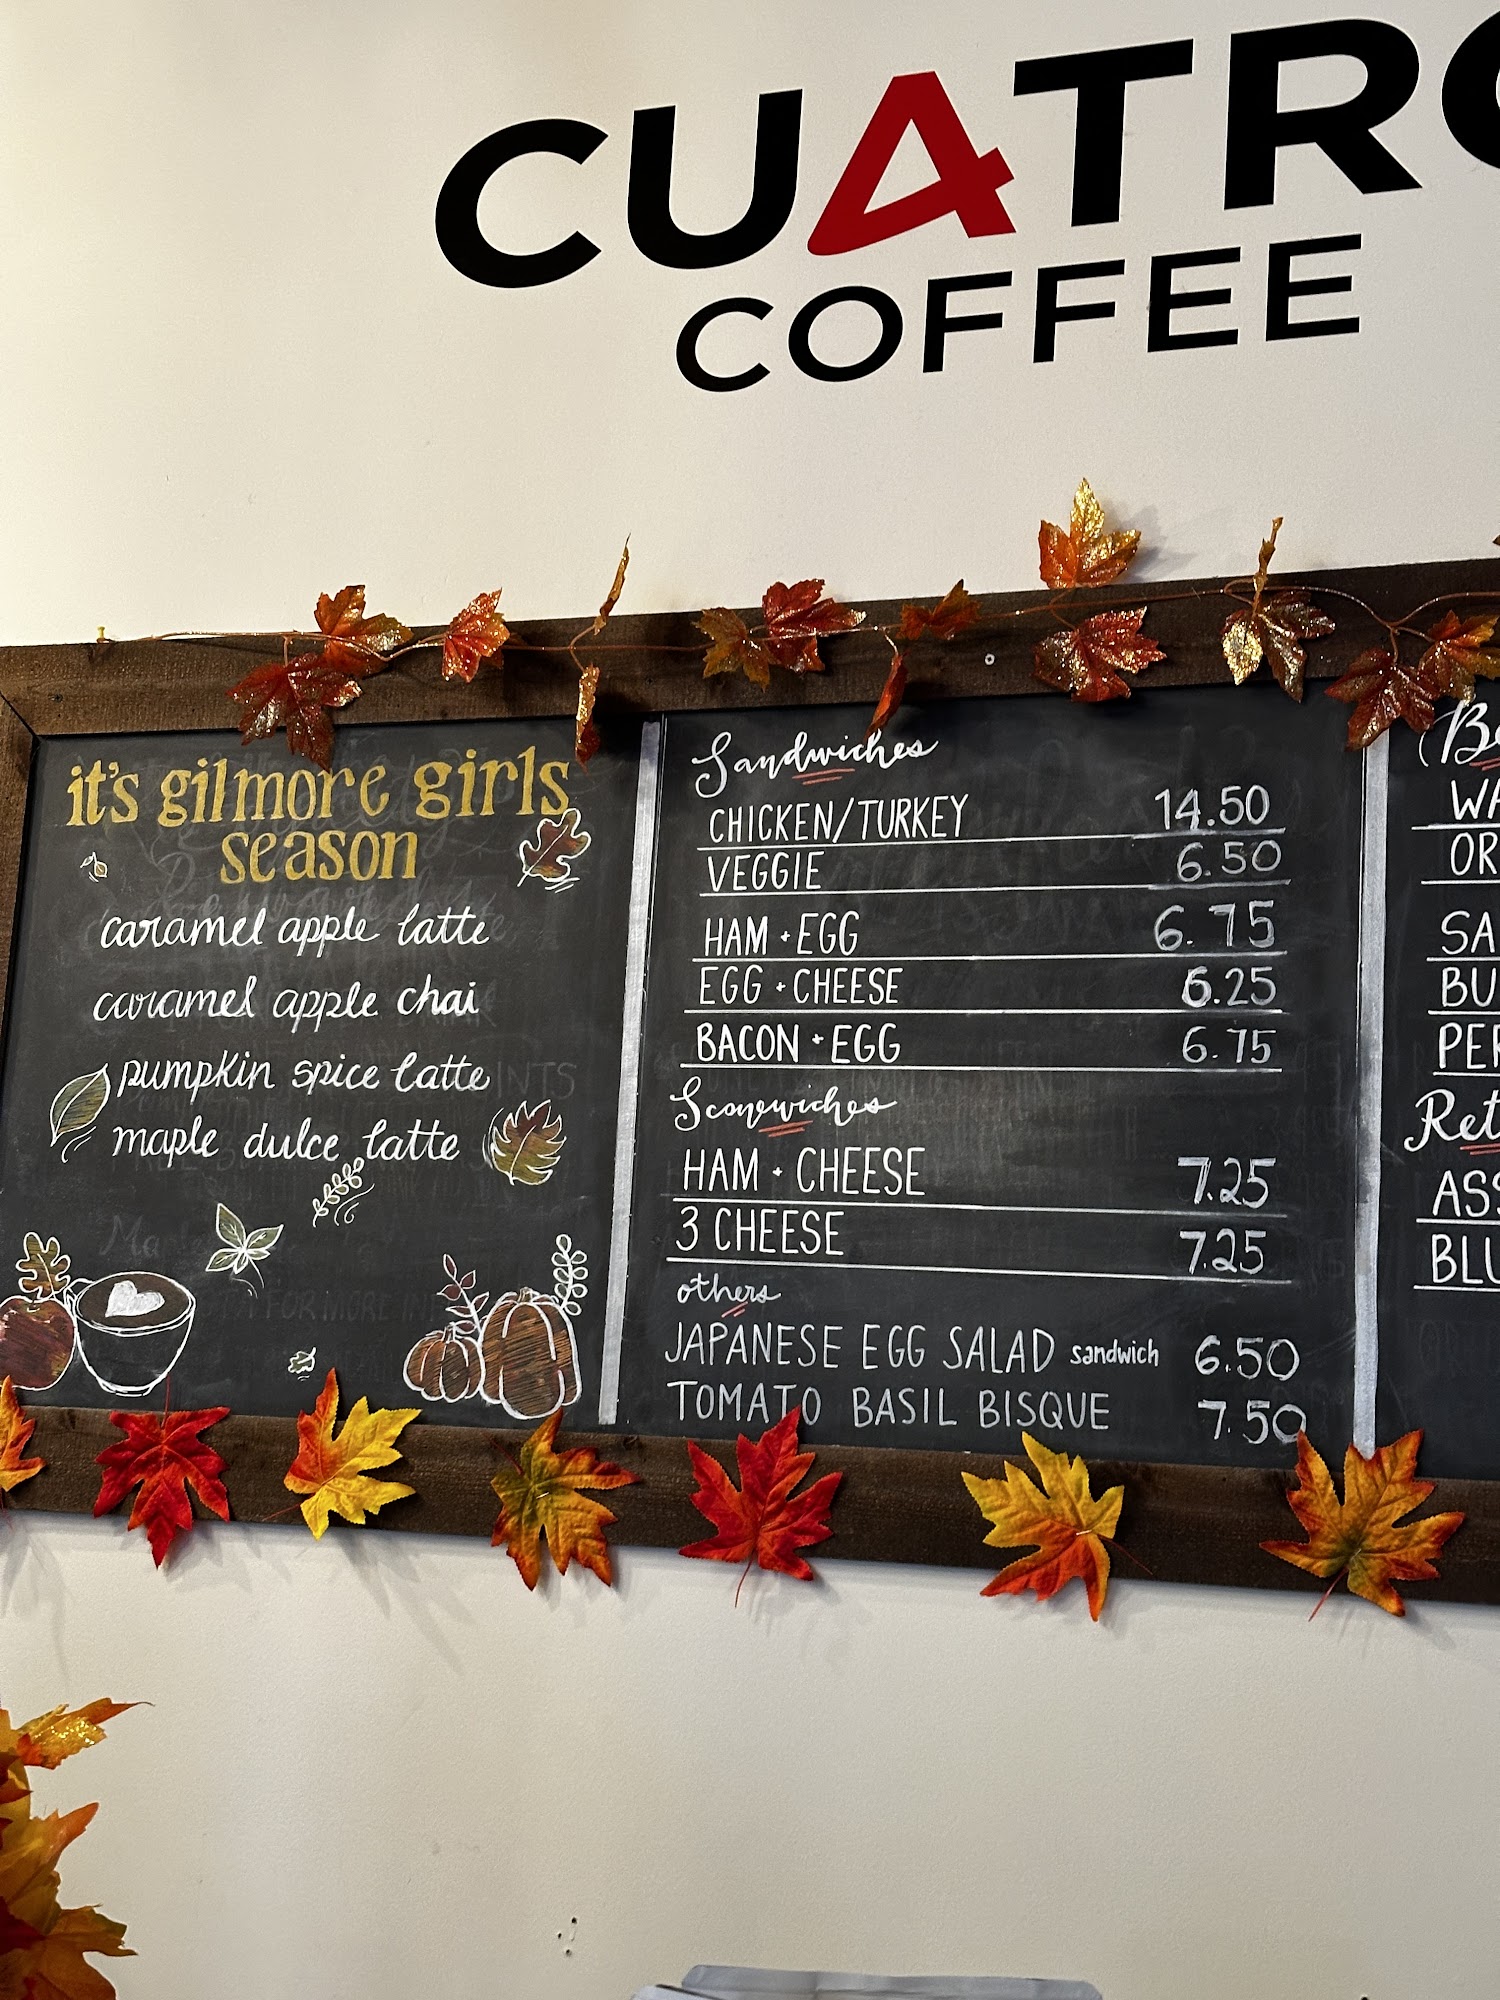 CUATRO
COFFEE
it's gilmore girls
season
caramel apple latte
caramel apple chai
pumpkin spice latte
maple dulce latte
Sandwiches
CHICKEN/TURKEY 14.50
VEGGIE 6.50
HAM + EGG 6.75
EGG + CHEESE 6.25
BACON + EGG 6.75
Sconewiches
HAM + CHEESE 7.25
3 CHEESE 7.25
others
JAPANESE EGG SALAD sandwich 6.50
TOMATO BASIL BISQUE 7.50
WA
OR
SA
BU
PER
Ret
ASS
BLU